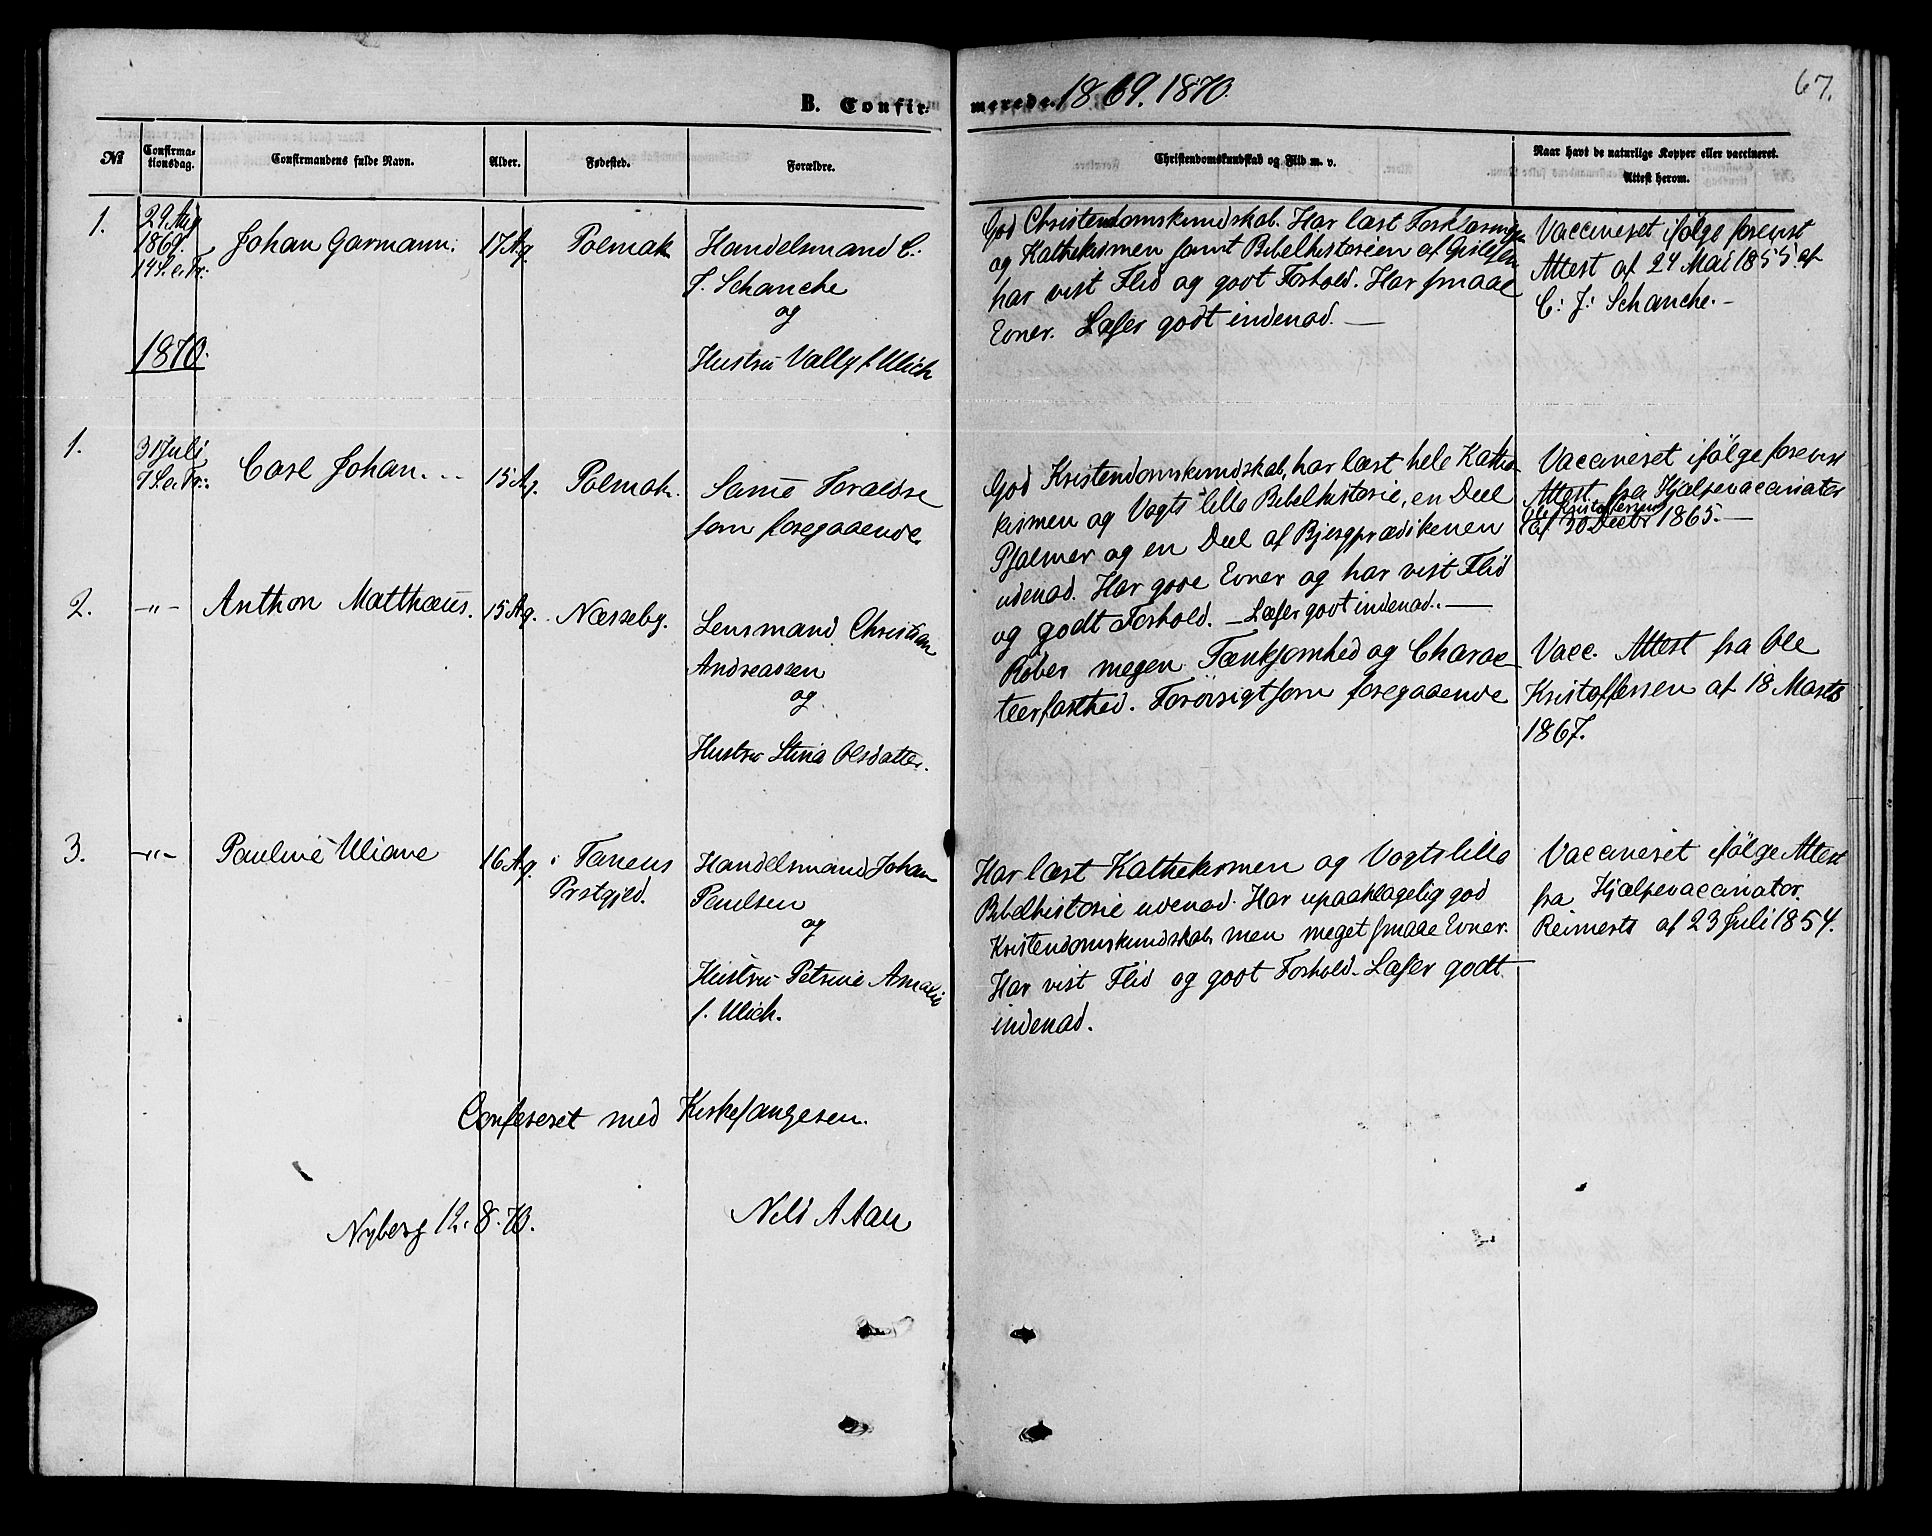 B. Confirmerede. 1869. 1870.
67.
No
Confirma-
tionsdag.
Confirmandens fulde Navn.
Alder.
Fødested.
Forældre.
Christendomskundskab og Flid m. v.
Naar havt de naturlige Kopper eller vaccineret.
Attest herom.
1.
29 Aug
1869.
14 S. e. Tr:
Johan Garmann.
17 Ag.
Polmak
Handelsmand C.
J. Schanche
og
Hustru Vally f. Ulich
God Christendomskundskab. Har læst Forklaringen
og Kathekismen samt Bibelhistorien af
har vist Flid og godt Forhold. Har smaae
Evner. Læser godt indenad. —
Vaccineret ifølge forevist
Attest af 24 Mai 1855 af
C: J: Schanche. -
1870.
1.
31 Juli
7 S. e. Tr:
Carl Johan. ..
15 Ag.
Polmak.
Samme Forældre
som foregaaende.
God Kristendomskundskab, har læst hele Kathe-
kismen og Vogts lille Bibelhistorie, en Deel
Psalmer og en Deel af Bjergprædikenen
udenad. Har gode Evner og har vist Flid
og godt Forhold. — Læser godt indenad. —
Vaccineret ifølge forevist
Attest fra Hjælpevaccinatør
Ole Kristoffersen
af 30 Decbr 1865. —
2.
-"-
Anthon Matthæus.
15 Ag.
Næsseby.
Lensmand Christian
Andreassen
og
Hustru Stina Olsdatter.
Røber megen Tænksomhed og Charac-
teerfasthed. Forøvrigt som foregaaende
Vacc. Attest fra Ole
Kristoffersen af 18 Marts
1867.
3.
-"-
Pauline Uliane
16 Ag.
i Tanens
Prstgjeld.
Handelsmand Johan
Paulsen
og
Hustru Petrine Amalie
f. Ulich.
Har læst Kathekismen og Vogts lille
Bibelhistorie udenad. Har upaaklagelig god
Kristendomskundskab, men meget smaae Evner.
Har vist Flid og godt Forhold. Læser godt
indenad.
Vaccineret ifølge Attest
fra Hjælpevaccinatør
Reimerts af 23 Juli 1854.
Confereret med Kirkesangeren.
Nyborg 12. 8. 70.
Nils A Aall